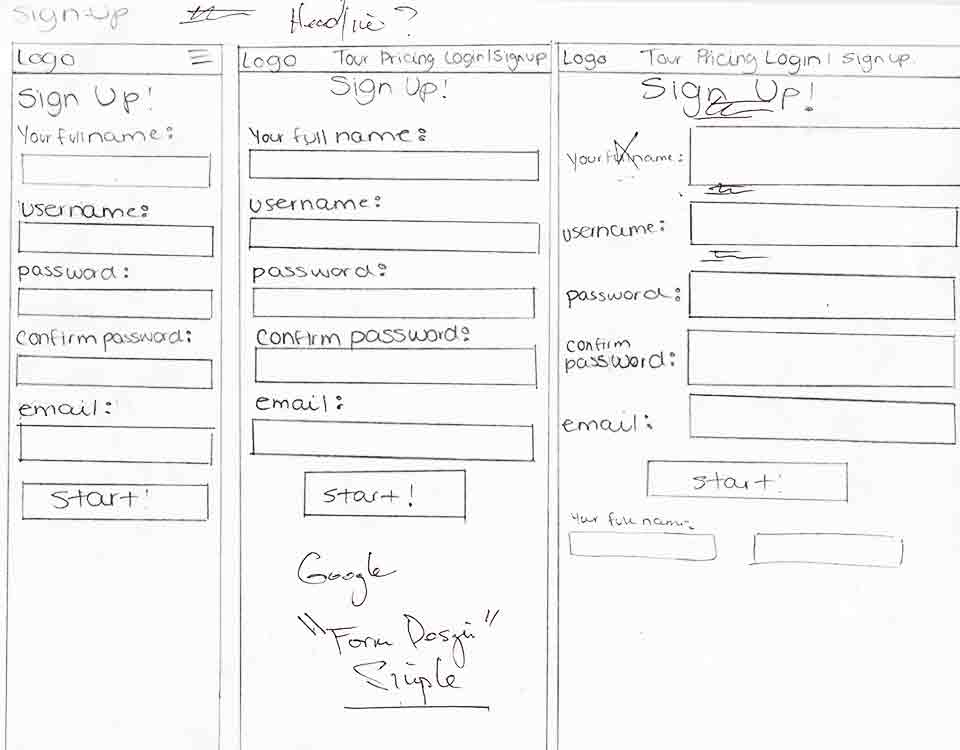 Sign-Up
Headline?
Logo
Sign Up!
Your full name:
username:
password:
Confirm password:
email:
start!
Logo Tour Pricing Login|Signup
Sign Up!
Your full name:
username:
password:
Confirm password:
email:
start!
Google
"Form Design"
Simple
Logo Tour Pricing Login| Sign up
Sign Up!
Your full name:
username:
password:
confirm
password:
email:
start!
Your full name: